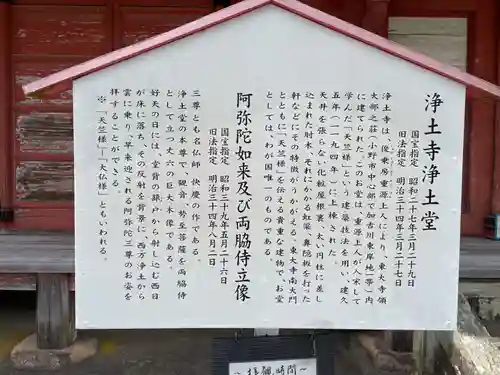 浄土寺浄土堂
国宝指定　昭和二十七年三月二十九日
旧法指定　明治三十四年三月二十七日
浄土寺は、俊乗房重源上人により、東大寺領
大部之荘（小野市中心部で加古川東岸地一帯）内
に建てられた。このお堂は、重源上人が入宋して
学んだ「天竺様」という建築技法を用い、建久
五年（一一九四年）に上棟された。
天井を張らない化粧屋根裏、太い円柱に差し
込まれた肘木とそれにかかる虹梁、鼻隠板を打った
軒などにその特徴がうかがえる。東大寺南大門
とともに「天竺様」を伝える貴重な建物で、お堂
としては、わが国唯一のものである。
阿弥陀如来及び両脇侍立像
国宝指定　昭和三十九年五月二十六日
旧法指定　明治三十四年八月二日
三尊とも名仏師　快慶の作である。
浄土堂の本尊で、観音、勢至菩薩を両脇侍
として立つ丈六の巨大木像である。
好天の日には、堂背の蔀戸から射し込む西日
が床に落ち、その反射を背景に、西方浄土から
雲に乗り、早来迎される阿弥陀三尊のお姿を
拝することができる。
※「天竺様」＝「大仏様」ともいわれる。